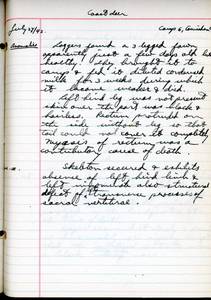 Coast deer
July 27/42. Camp 6,
Loggers found a 3 legged fawn
apparently just a few days old but
healthy. They brought it to
camp & fed it diluted condensed
milk for 3 weeks during which
it became weaker & died.
Left hind leg was not present
skin over the part was black &
hairless. Rectum protruded on
the side without leg so that
tail could not cover it completely
Myases of rectum was a
contributory cause of death.
Skeleton secured & exhibits
absence of left hind limb &
left innominate also structural
defect of transverse processes of
sacral vertebrae.